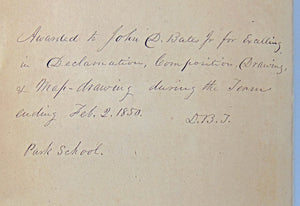 Awarded to John D. Bates Jr for Excelling
in Declamation, Composition, Drawing,
& Map-drawing during the Term
ending Feb. 2. 1850. D.B.T.
Park School.